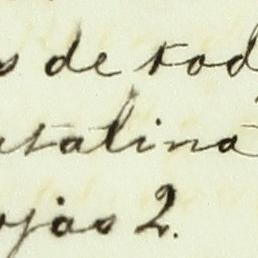 s de tod
atalina
ojas 2.